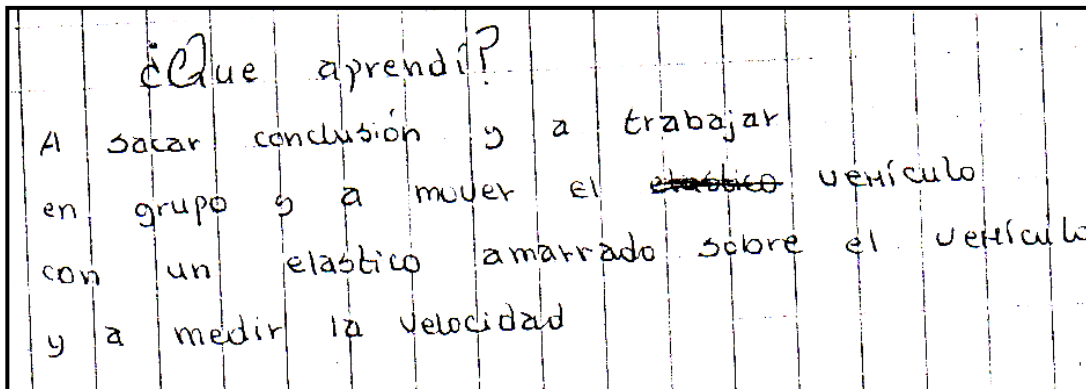 ¿Que aprendí?
A sacar conclusión y a trabajar
en grupo y a mover el elastico vehículo
con un elastico amarrado sobre el vehículo
y a medir la velocidad